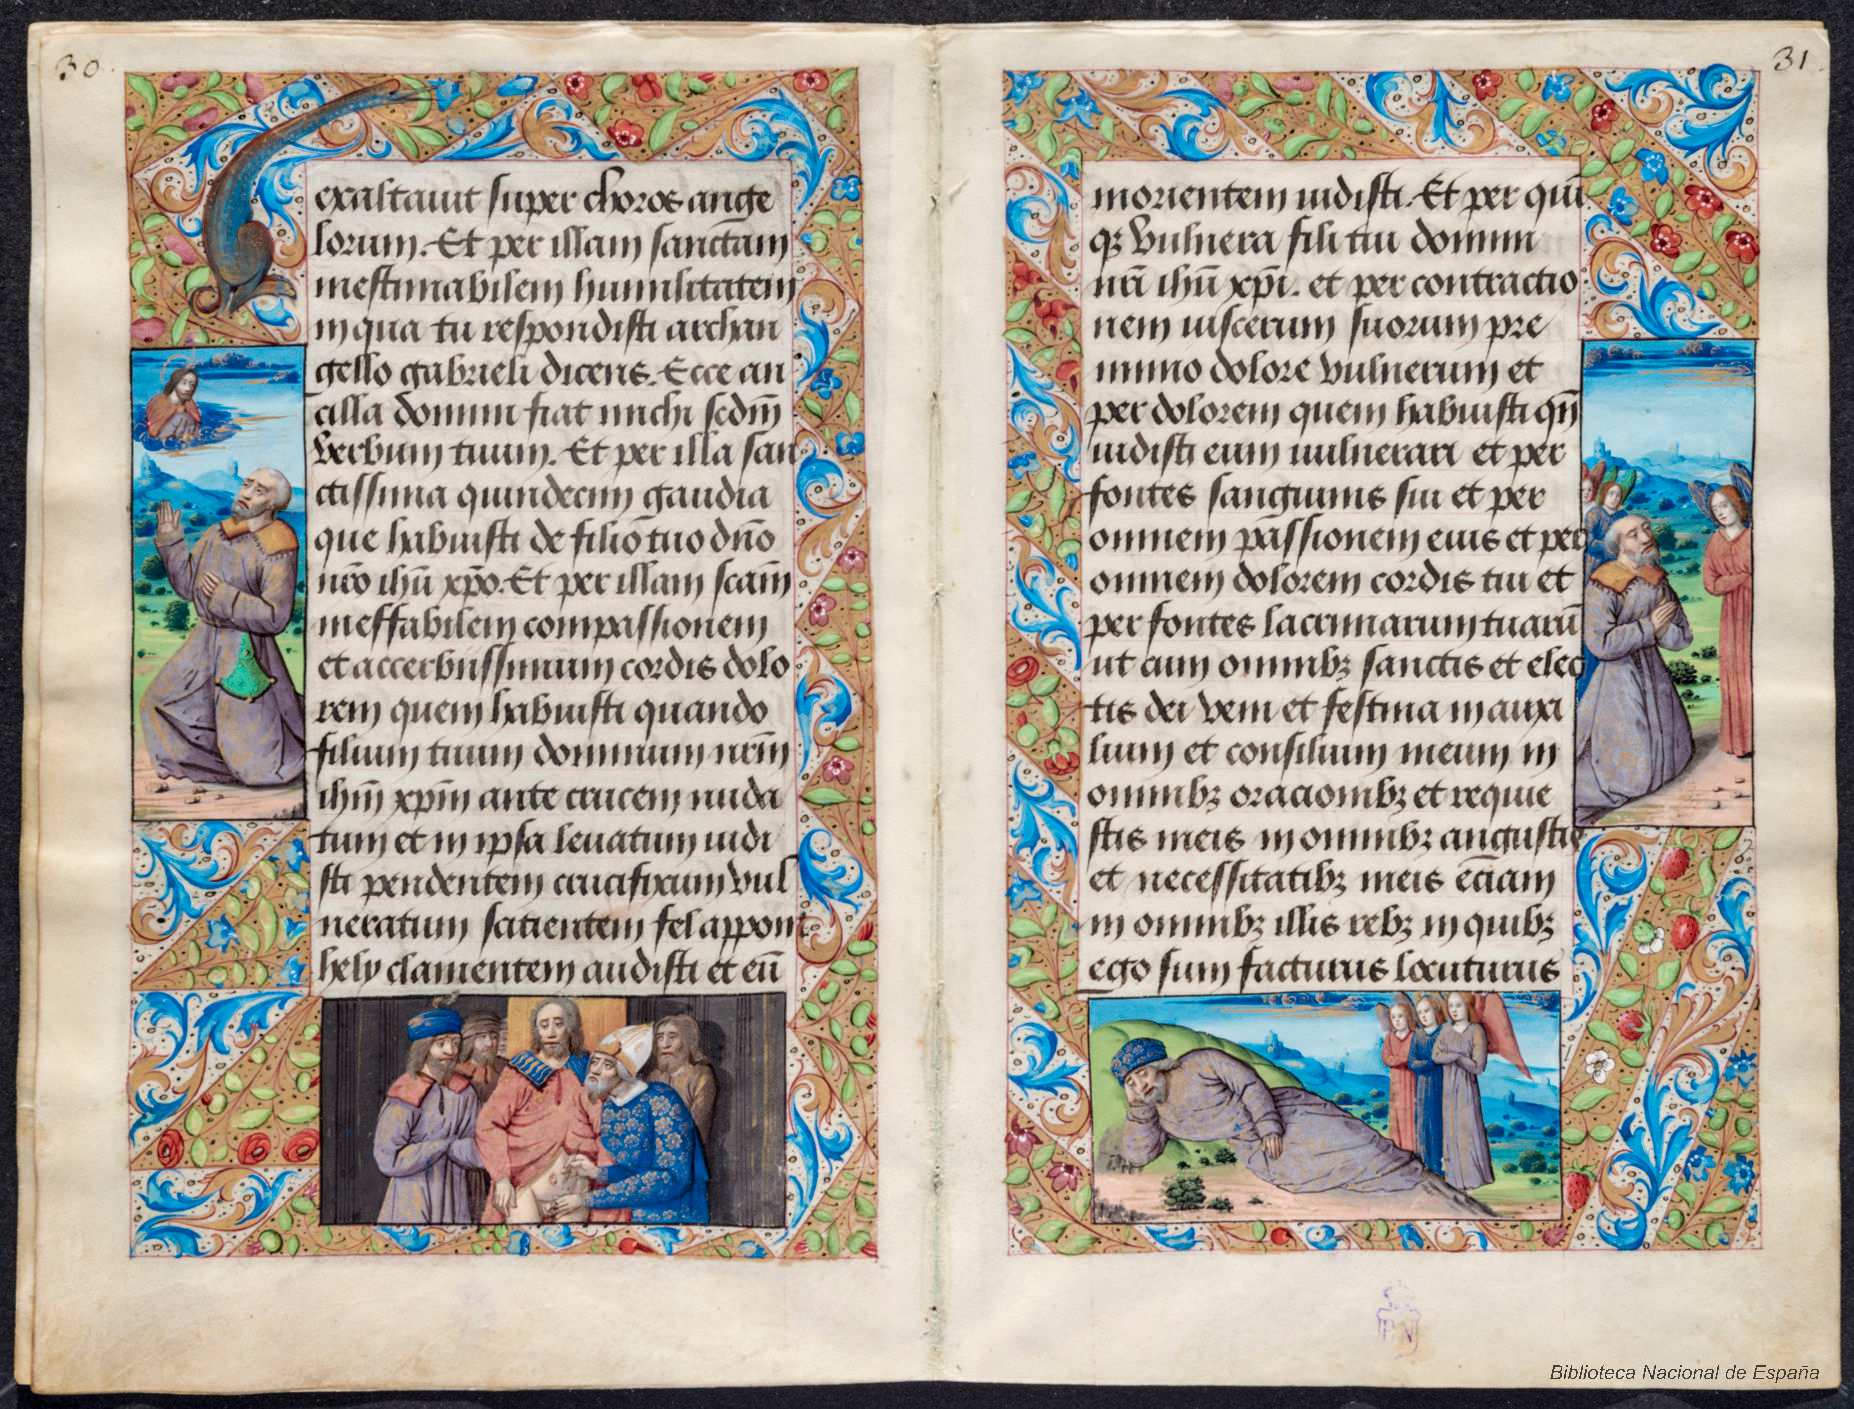 30.
exaltauit super choros ange
lorum. Et per illam sanctam
inestimabilem humilitatem
in qua tu respondisti archan
gello gabrieli dicens. Ecce an
cilla domini fiat michi scdm̄
verbum tuum. Et per illa san
ctissima quindecim gaudia
que habuisti de filiō tuo dn̄o
nr̄o ihū xp̄o. Et per illam scām
ineffabilem compassionem
et accerbiissimum cordis dolo
rem quem habuisti quando
filium tuum dominum nr̄m
ihm̄ xpm̄ ante crucem nuda
tum et in ipsa leuatum uidi
sti pendentem crucifixum vul
neratum sitientem fel apponi
hely clamentem audisti et eū
31
morientem uidisti. Et per quī
qꝫ vulnera fili tui domini
nr̄i ihū xp̄i. et per contractio
nem uiscerum suorum pre
nimio dolore vulnerum et
per dolorem quem habuisti qn̄
uidisti eum uulnerari et per
fontes sanguinis sui et per
omnem pāssionem eius et per
omnem dolorem cordis tui et
per fontes lacrimarum tuarū
ut cum omnibꝫ sanctis et elec
tis dei veni et festina in auxi
lium et consilium meum in
omnibꝫ oracionibꝫ et requie
stis meis in omnibꝫ angustiis
et necessitatibꝫ meis ēciam
in omnibꝫ illis rebꝫ in quibꝫ
ego sum facturus locuturus
BN
Biblioteca Nacional de España